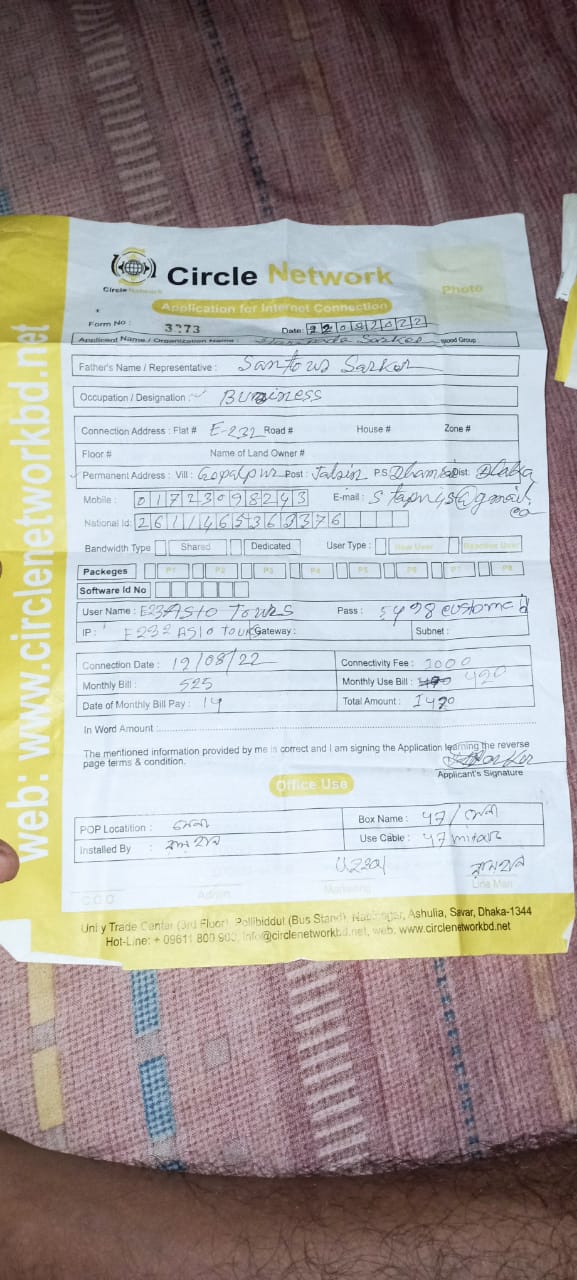 web: www.circlenetworkbd.net
Circle Network
Circle Network
Photo
Application for Internet Connection
Form No : 3273
Date: 22082022
Applicant Name / Organization Name : Sarker Blood Group
Father's Name / Representative : Santous Sarker
Occupation / Designation : Business
Connection Address : Flat # E-232 Road # House # Zone #
Floor # Name of Land Owner #
Permanent Address : Vill : Gopalpur Post : Jalsin P.S: Dhamrai Dist: Dhaka
Mobile : 01723098243 E-mail :
National Id:
Bandwidth Type Shared Dedicated User Type : New User Reactive User
Packeges P1 P2 P3 P4 P5 P6 P7 P8
Software Id No
User Name : Pass :
IP : Gateway: Subnet :
Connection Date : 19/08/22 Connectivity Fee : 1000
Monthly Bill : 525 Monthly Use Bill : 420
Date of Monthly Bill Pay : 14 Total Amount : 1420
In Word Amount :
The mentioned information provided by me is correct and I am signing the Application learning the reverse
page terms & condition.
Applicant's Signature
Office Use
POP Locatition : মেলা Box Name : 47/মেলা
Installed By : Use Cable : 47
C.O.O Admin Marketing Line Man
Unity Trade Center (3rd Floor), Pollibiddut (Bus Stand), Nabinagar, Ashulia, Savar, Dhaka-1344
Hot-Line: + 09611 800 900, info@circlenetworkbd.net, web: www.circlenetworkbd.net